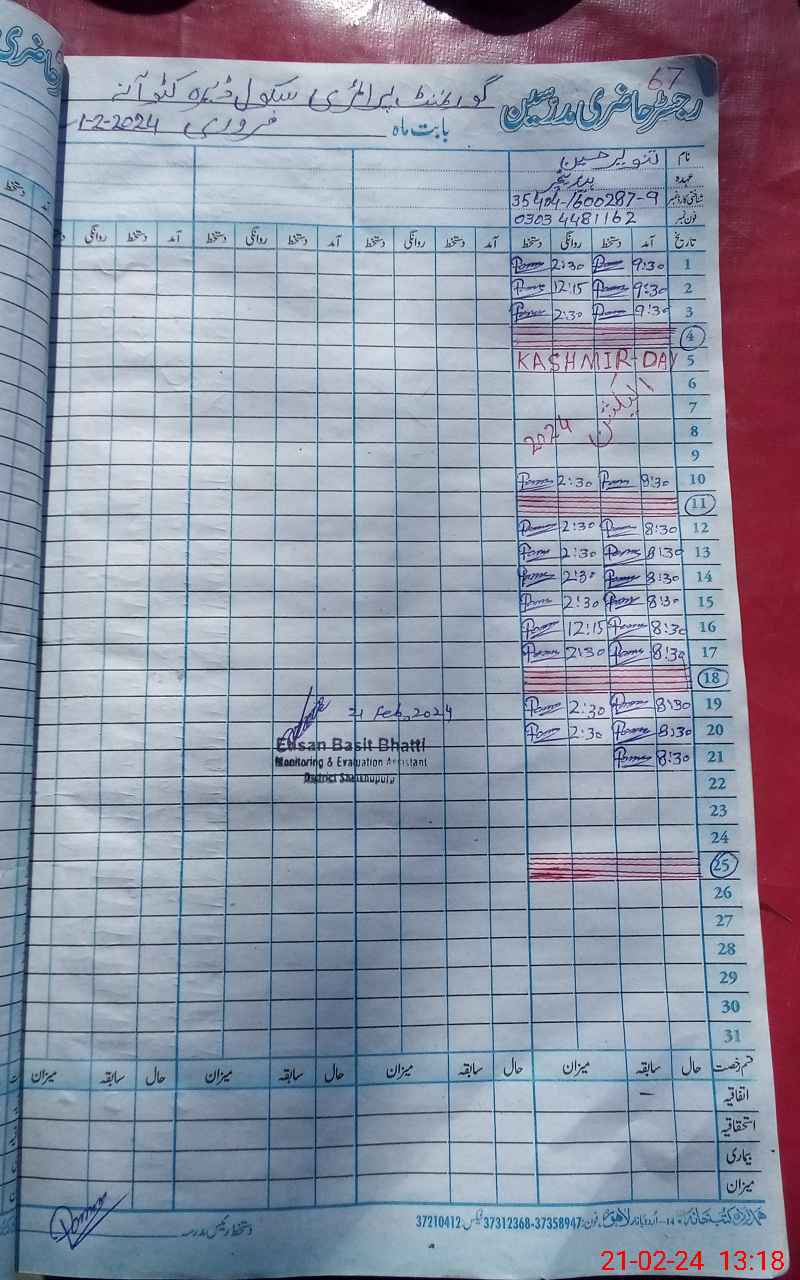 67
رجسٹر حاضری مدرسین گورنمنٹ پرائمری سکول ڈیرہ
بابت ماہ فروری 1-2-2024
نام تنویر حسین
عہدہ
شناختی کارڈ نمبر 35404-1600287-9
فون نمبر 0303 4481162
تاریخ آمد دستخط روانگی دستخط آمد دستخط روانگی دستخط آمد دستخط روانگی دستخط آمد دستخط روانگی
1 9:30 2:30
2 9:30 12:15
3 9:30 2:30
4
5 KASHMIR-DAY
6
7 الیکشن
8 2024
9
10 8:30 2:30
11
12 8:30 2:30
13 8:30 2:30
14 8:30 2:30
15 8:30 2:30
16 8:30 12:15
17 8:30 2:30
18
19 8:30 2:30
20 8:30 2:30
21 8:30
21 Feb, 2024
Ehsan Basit Bhatti
Monitoring & Evaluation Assistant
District Sheikhupura
22
23
24
25
26
27
28
29
30
31
قسم رخصت حال سابقہ میزان حال سابقہ میزان حال سابقہ میزان حال سابقہ میزان
اتفاقیہ –
استحقاقیہ
بیماری
میزان
دستخط رئیس مدرسہ
ہمدرد کتب خانہ 14-اردو بازار لاہور فون: 37358947-37312368 فیکس: 37210412
21-02-24 13:18